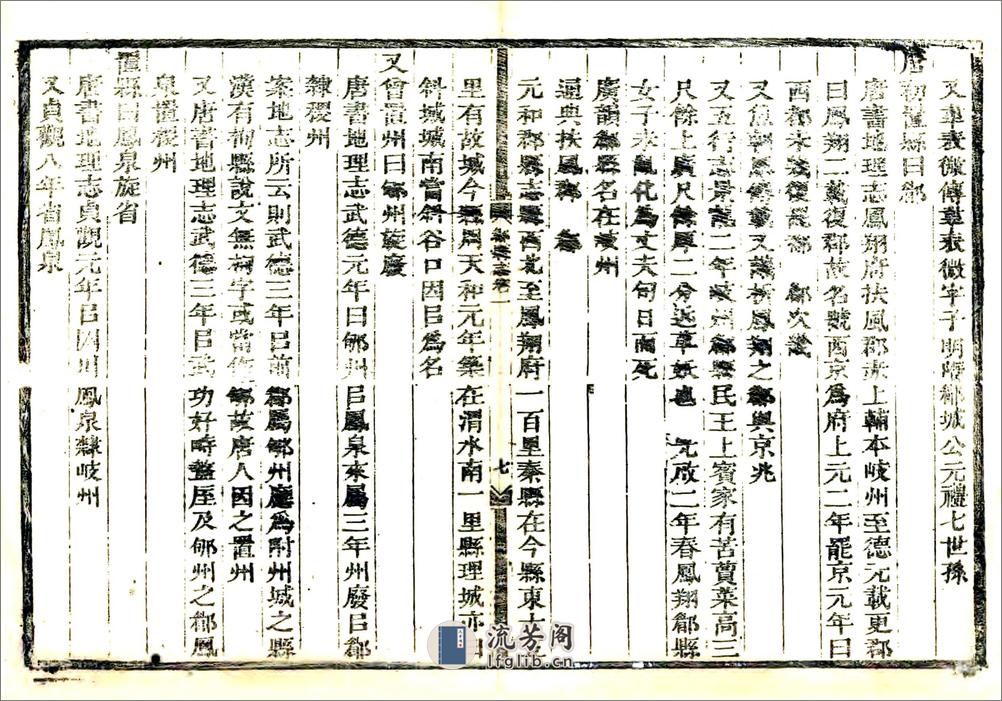 又韋表微傳韋表微字子明隋郿城公元禮七世孫
唐初置縣曰郿
唐書地理志鳳翔府扶風郡赤上輔本岐州至德元載更郡
曰鳳翔二載復郡故名號西京為府上元二年罷京元年曰
西都未幾復罷都 郿次畿
又魚朝恩傳 又 鳳翔之郿與京兆
又五行志景龍二年岐州郿縣民王上賓家有苦蕒菜高三
尺餘上廣尺餘厚二分近草妖也 光啟二年春鳳翔郿縣
女子未齔化為丈夫旬日而死
廣韻郿縣名在岐州
通典扶風郡 郿
元和郡縣志郿縣西北至鳳翔府一百里秦縣在今縣東十五
里有故城今縣周天和元年築在渭水南一里縣理城亦曰
斜城城南當斜谷口因㠯為名
又曾置州曰郇州旋廢
唐書地理志武德元年曰郇州㠯鳳泉來屬三年州廢㠯郿
隸稷州
案地志所云則武德三年㠯前郿屬郇州廳為附州城之縣
漢有栒縣說文無栒字或當作郇故唐人因之置州
又唐書地理志武德三年㠯武功好畤盩厔及郇州之郿鳳
泉置稷州
置縣曰鳳泉旋省
唐書地理志貞觀元年㠯 鳳泉隸岐州
又貞觀八年省鳳泉
七
流芳阁
lfglib.cn